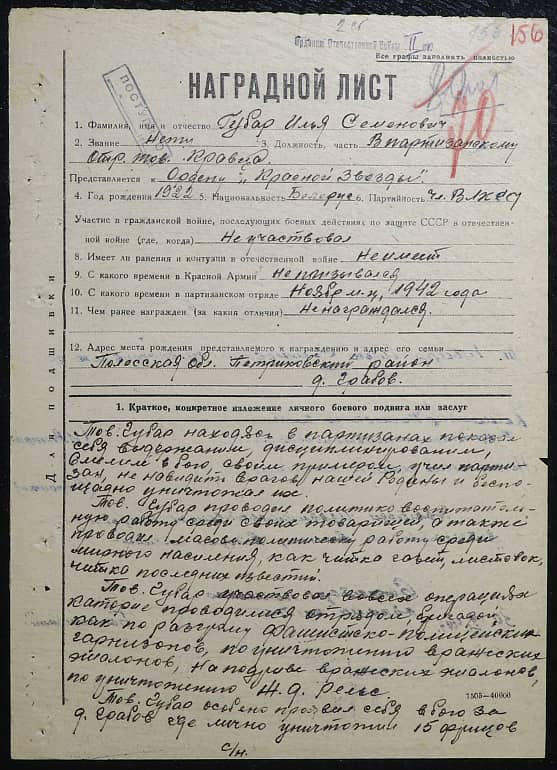 2 ст
Орденом Отечественной Войны II ст
156
Все графы заполнять полностью
НАГРАДНОЙ ЛИСТ
1. Фамилия, имя и отчество Губар Илья Семонович
2. Звание Нету 3. Должность, часть В партизанскому
Отр. тов. Кравца.
Представляется к Ордену „Красной Звезды"
4. Год рождения 1922 5. Национальность Белорус 6. Партийность чл. ВЛКСМ
Участие в гражданской войне, последующих боевых действиях по защите СССР в отечествен-
ной войне (где, когда) Не участвовал
8. Имеет ли ранения и контузии в отечественной войне Не имеет
9. С какого времени в Красной Армии Не призывался
10. С какого времени в партизанском отряде Ноябр м-ц, 1942 года
11. Чем ранее награжден (за какия отличия) Не награждался.
12. Адрес места рождения представляемого к награждению и адрес его семьи
Полесская Обл. Петриковский район
д. Грабов.
Для подшивки
1. Краткое, конкретное изложение личного боевого подвига или заслуг
Тов. Губар находясь в партизанах показал
себя выдержаним, дисциплинированим,
смелим в бою, своим примером, учил парти-
зан, не навидить врагов нашей Родины и беспо-
щадно уничтожал их.
Тов. Губар проводил политико воспитатель-
ную работу среди своих товарищей, а также
проводил масово политическ работу среди
мирного населения, как читка газет, листовок,
читка последних известий.
Тов. Губар участвовал в всех операциях
каторие проводилися отрядом, бригадой
как по разгрому фашистско-полицейских
гарнизонов, по уничтожению вражеских
эшалонов, На подриве вражеских эшалонов,
по уничтожению Ж. д. Рельс.
1505—40000
Тов. Губар особено проявил себя в бою за
д. Грабов где лично уничтожил 15 фрицов
с/н.